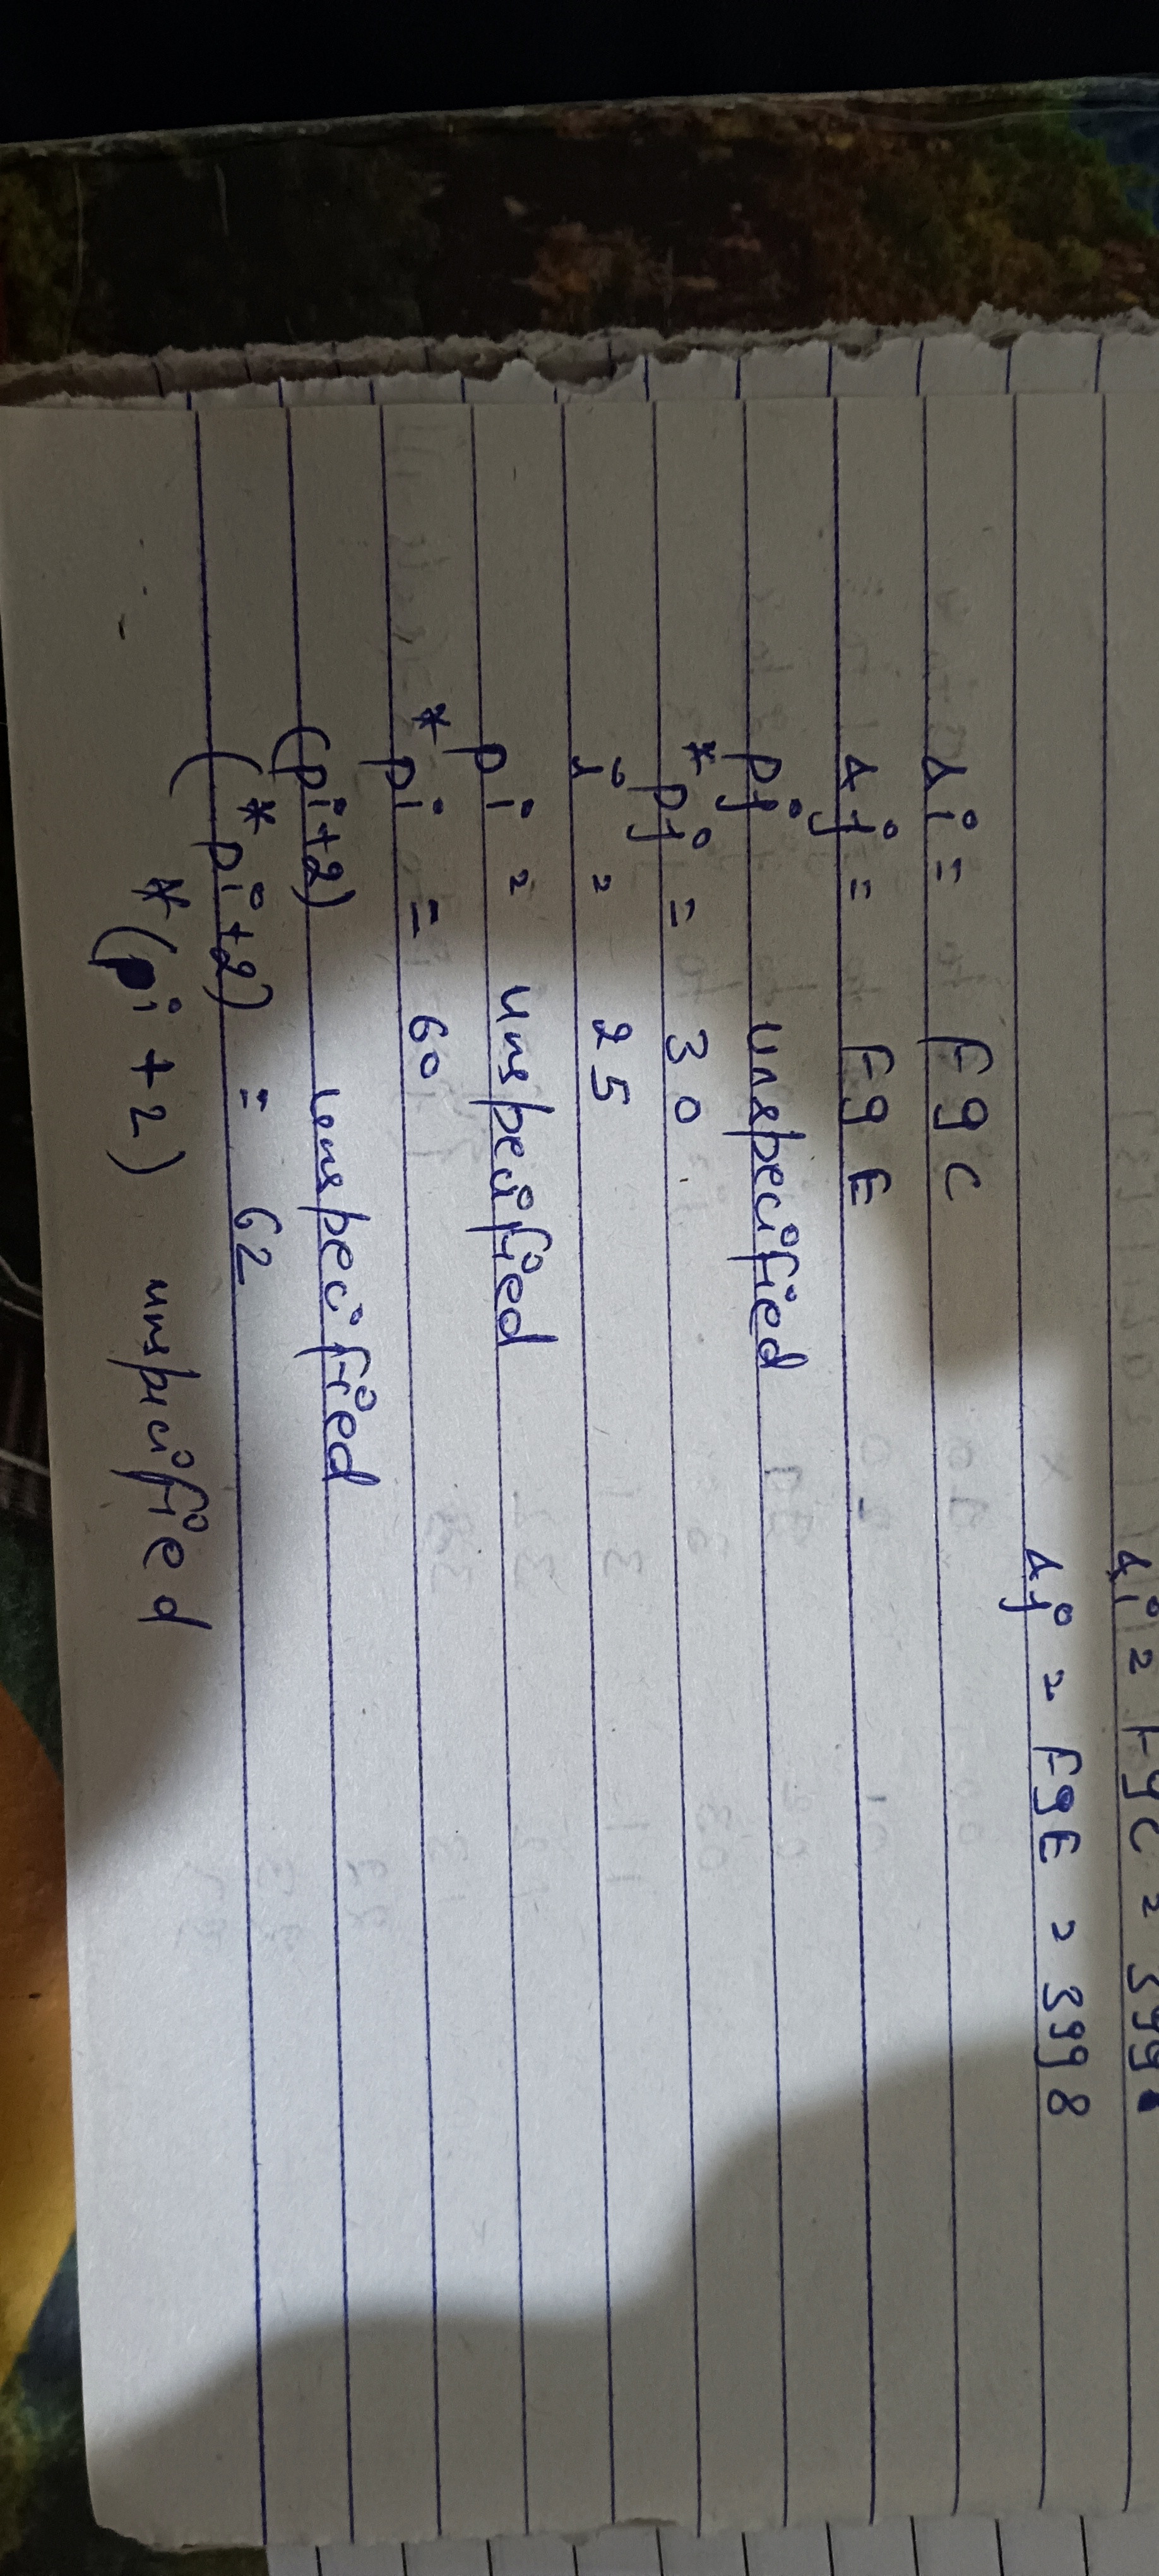 &i = F9C = 399
&j = F9E = 3998
&i = F9C
&j = F9E
pj unspecified
*pj = 30
j = 25
pi = unspecified
*pi = 60
(pi+2) unspecified
(*pi+2) = 62
*(pi + 2) unspecified